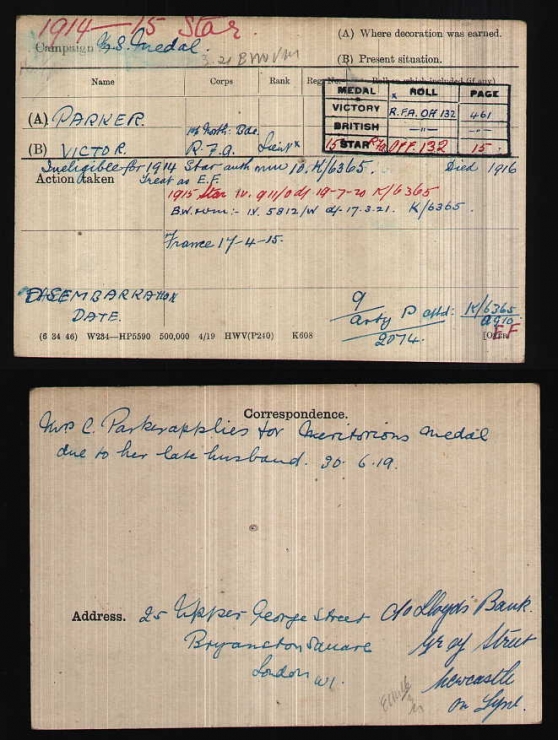 1914–15 Star.
(A) Where decoration was earned.
Campaign G.S. Medal.
(B) Present situation.
Name Corps Rank Reg. No. Roll on which included (if any)
MEDAL ROLL PAGE
VICTORY R.F.A. Off 132 461
BRITISH —"— —"—
15 STAR RFA Off. 132 15
(A) PARKER.
(B) VICTOR. R.F.A. Lieut x
Ineligible for 1914 Star auth K/6365. Died 1916
Action taken Treat as E.F.
1915 Star IV. 911/0 d/ 19-7-20 K/6365
B.W. :- IV. 5812/W d/- 17.3.21. K/6365.
France 17-4-15.
DISEMBARKATION
DATE.
9
Arty P
2074.
K/6365
EF
(6 34 46) W234—HP5590 500,000 4/19 HWV(P240) K608
Correspondence.
Mrs C. Parker applies for Meritorious medal
due to her late husband. 30.6.19.
Address. 25 Upper George Street
Bryanston Square
London W1.
c/o Lloyds Bank.
Grey Street
Newcastle
on Tyne.